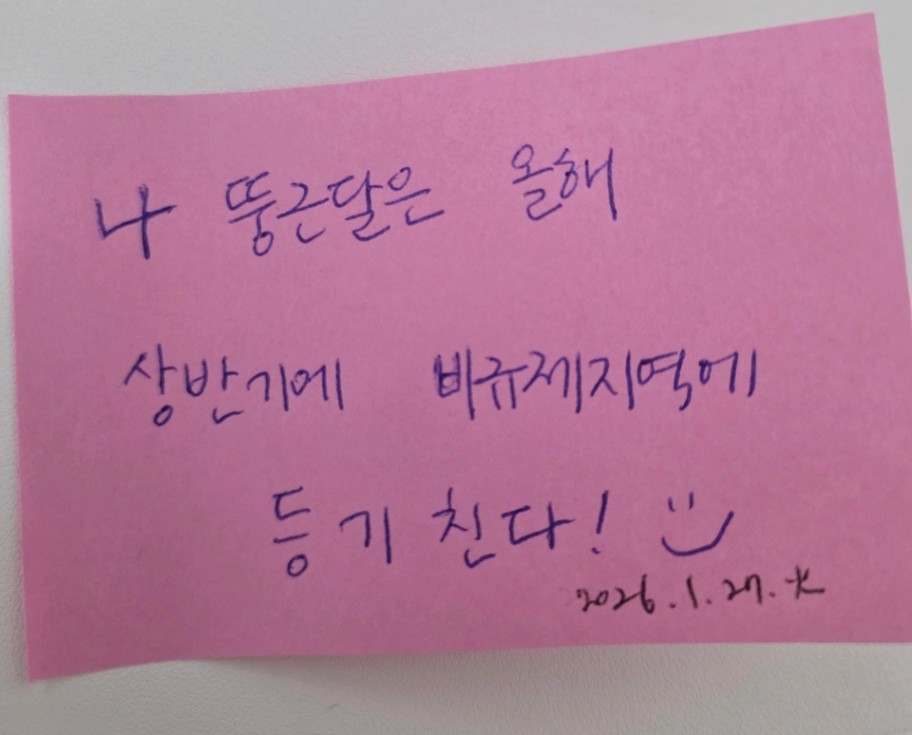 나 뚱근달은 올해
상반기에 비규제지역에
등기 친다!
2026.1.27.火